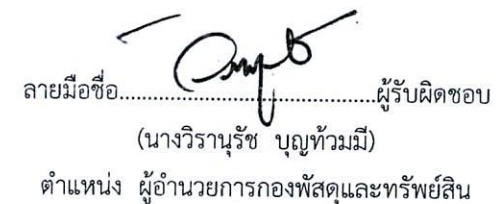 ลายมือชื่อ........................................ผู้รับผิดชอบ
(นางวิรานุรัช บุญท้วมมี)
ตำแหน่ง ผู้อำนวยการกองพัสดุและทรัพย์สิน